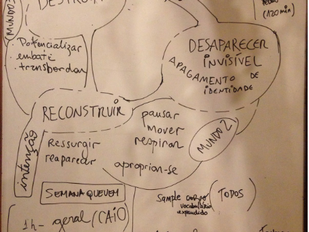 DESTRUIR
(MUNDO
(120 min)
Potencializar
embati
transbordar
DESAPARECER
INVISÍVEL
APAGAMENTO DE
IDENTIDADE
RECONSTRUIR
pausar
mover
respirar
MUNDO 2
intenção
Ressurgir
reaparecer
apropriar-se
SEMANA QUE VEM
sample corpo
vocabulário
expandido
(TODOS)
1h - geral (CAIO)